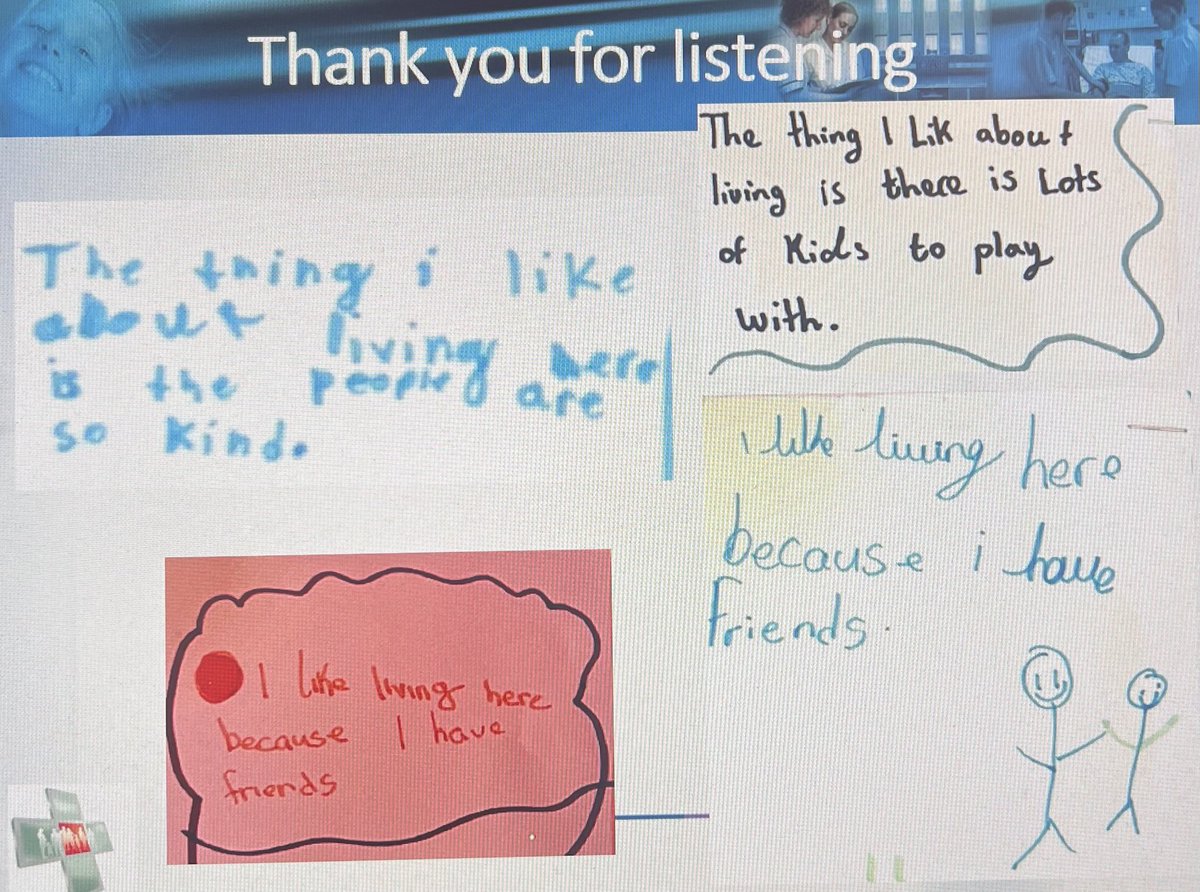 Thank you for listening
The thing I Lik about
living is there is Lots
of Kids to play
with.
The thing i like
about living here
is the people are
so kind.
i like living here
because i have
friends.
I like living here
because I have
friends